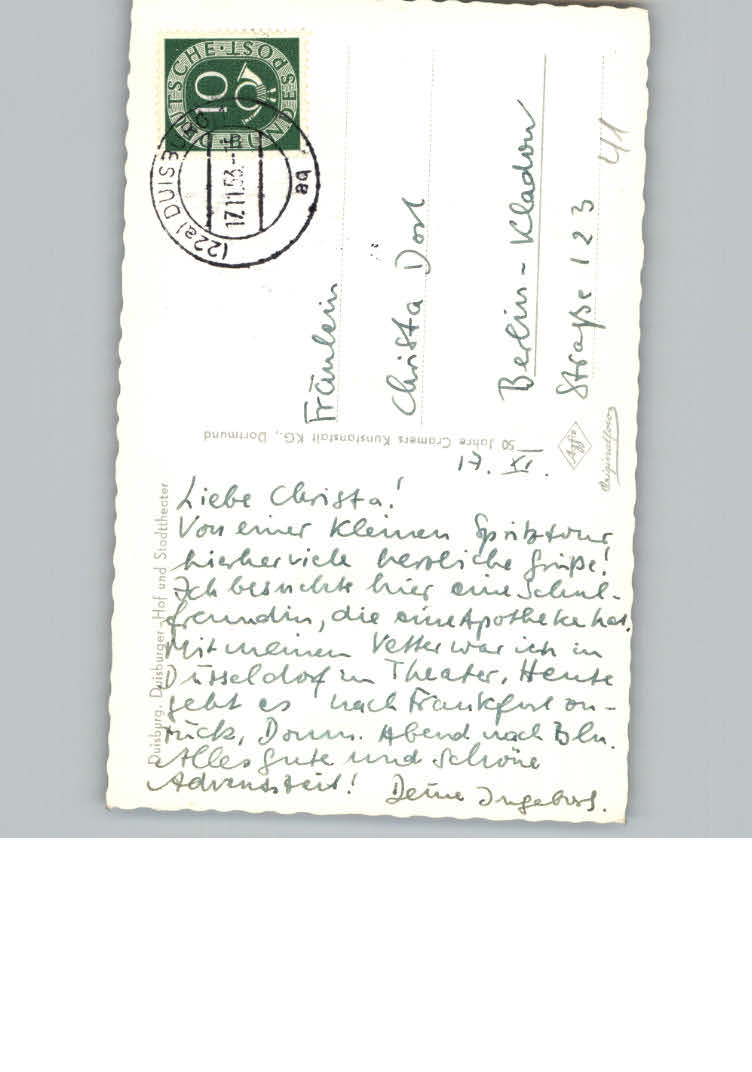 DEUTSCHE BUNDESPOST
10
(22a) DUISBURG 1
17.11.53.
ba
Fräulein
Christa Dost
Berlin-Kladow
Straße 123
41
50 Jahre Cramers Kunstanstalt KG., Dortmund
Agfa
Originalfoto
Duisburg. Duisburger-Hof und Stadttheater
17. XI.
Liebe Christa!
Von einer kleinen Spritztour
hierher viele herzliche Grüße!
Ich besuchte hier eine Schul-
freundin, die eine Apotheke hat.
Mit meinem Vetter war ich in
Düsseldorf im Theater. Heute
geht es nach Frankfurt zu-
rück, Donn. Abend nach Bln.
Alles Gute und schöne
Adventszeit! Deine Ingeborg.